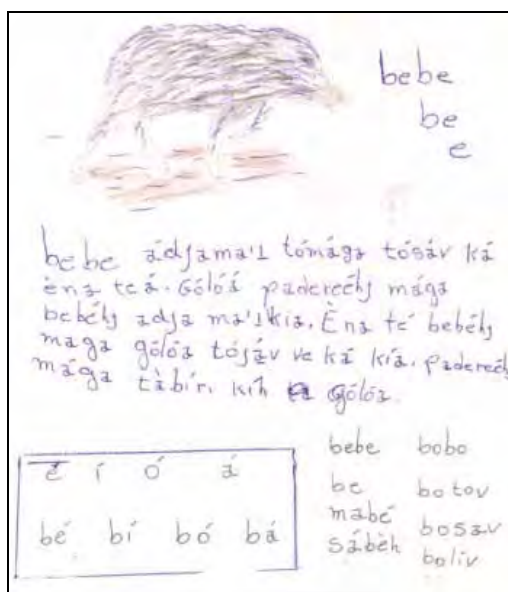 bebe
be
e
bebe ádjama'ı tómága tósáv ká
èna teá. Gólóá padereéhj mága
bebéhj adja ma'ıkia. Èna té bebéhj
maga gólóa tósáv ve ká kía. padereéhj
mága tàbíri kih gólóa.
é í ó á
bé bí bó bá
bebe bobo
be botov
mabé bosav
sábèh boliv